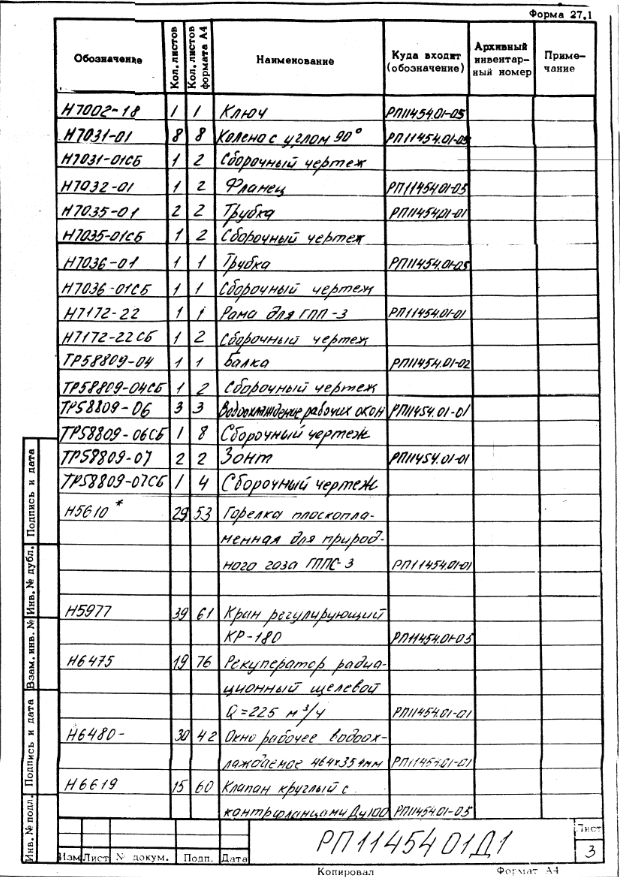 Форма 27.1
Обозначение Кол. листов Кол. листов формата А4 Наименование Куда входит (обозначение) Архивный инвентарный номер Примечание
Н7002-18 1 1 Ключ РП11454.01-05
Н7031-01 8 8 Колена с углом 90° РП11454.01-05
Н7031-01СБ 1 2 Сборочный чертеж
Н7032-01 1 2 Фланец РП11454.01-05
Н7035-01 2 2 Трубка РП11454.01-01
Н7035-01СБ 1 2 Сборочный чертеж
Н7036-01 1 1 Трубка РП11454.01-05
Н7036-01СБ 1 1 Сборочный чертеж
Н7172-22 1 1 Рама для ГПП-3 РП11454.01-01
Н7172-22СБ 1 2 Сборочный чертеж
ТР58809-04 1 1 Балка РП11454.01-02
ТР58809-04СБ 1 2 Сборочный чертеж
ТР58809-06 3 3 Водоохлаждение рабочих окон РП11454.01-01
ТР58809-06СБ 1 8 Сборочный чертеж
ТР58809-07 2 2 Зонт РП11454.01-01
ТР58809-07СБ 1 4 Сборочный чертеж
Н5610* 29 53 Горелка плоскопла-
менная для природ-
ного газа ГППС-3 РП11454.01-01
Н5977 39 61 Кран регулирующий
КР-180 РП11454.01-05
Н6475 19 76 Рекуператор радиа-
ционный щелевой
Q=225 м³/ч РП11454.01-01
Н6480- 30 42 Окно рабочее водоох-
лаждаемое 464х354мм РП11454.01-01
Н6619 15 60 Клапан круглый с
контрфланцами Ду100 РП11454.01-05
Инв. № подл. Подпись и дата Взам. инв. № Инв. № дубл. Подпись и дата
РП11454.01Д1
Лист
3
Изм Лист № докум. Подп. Дата
Копировал Формат А4